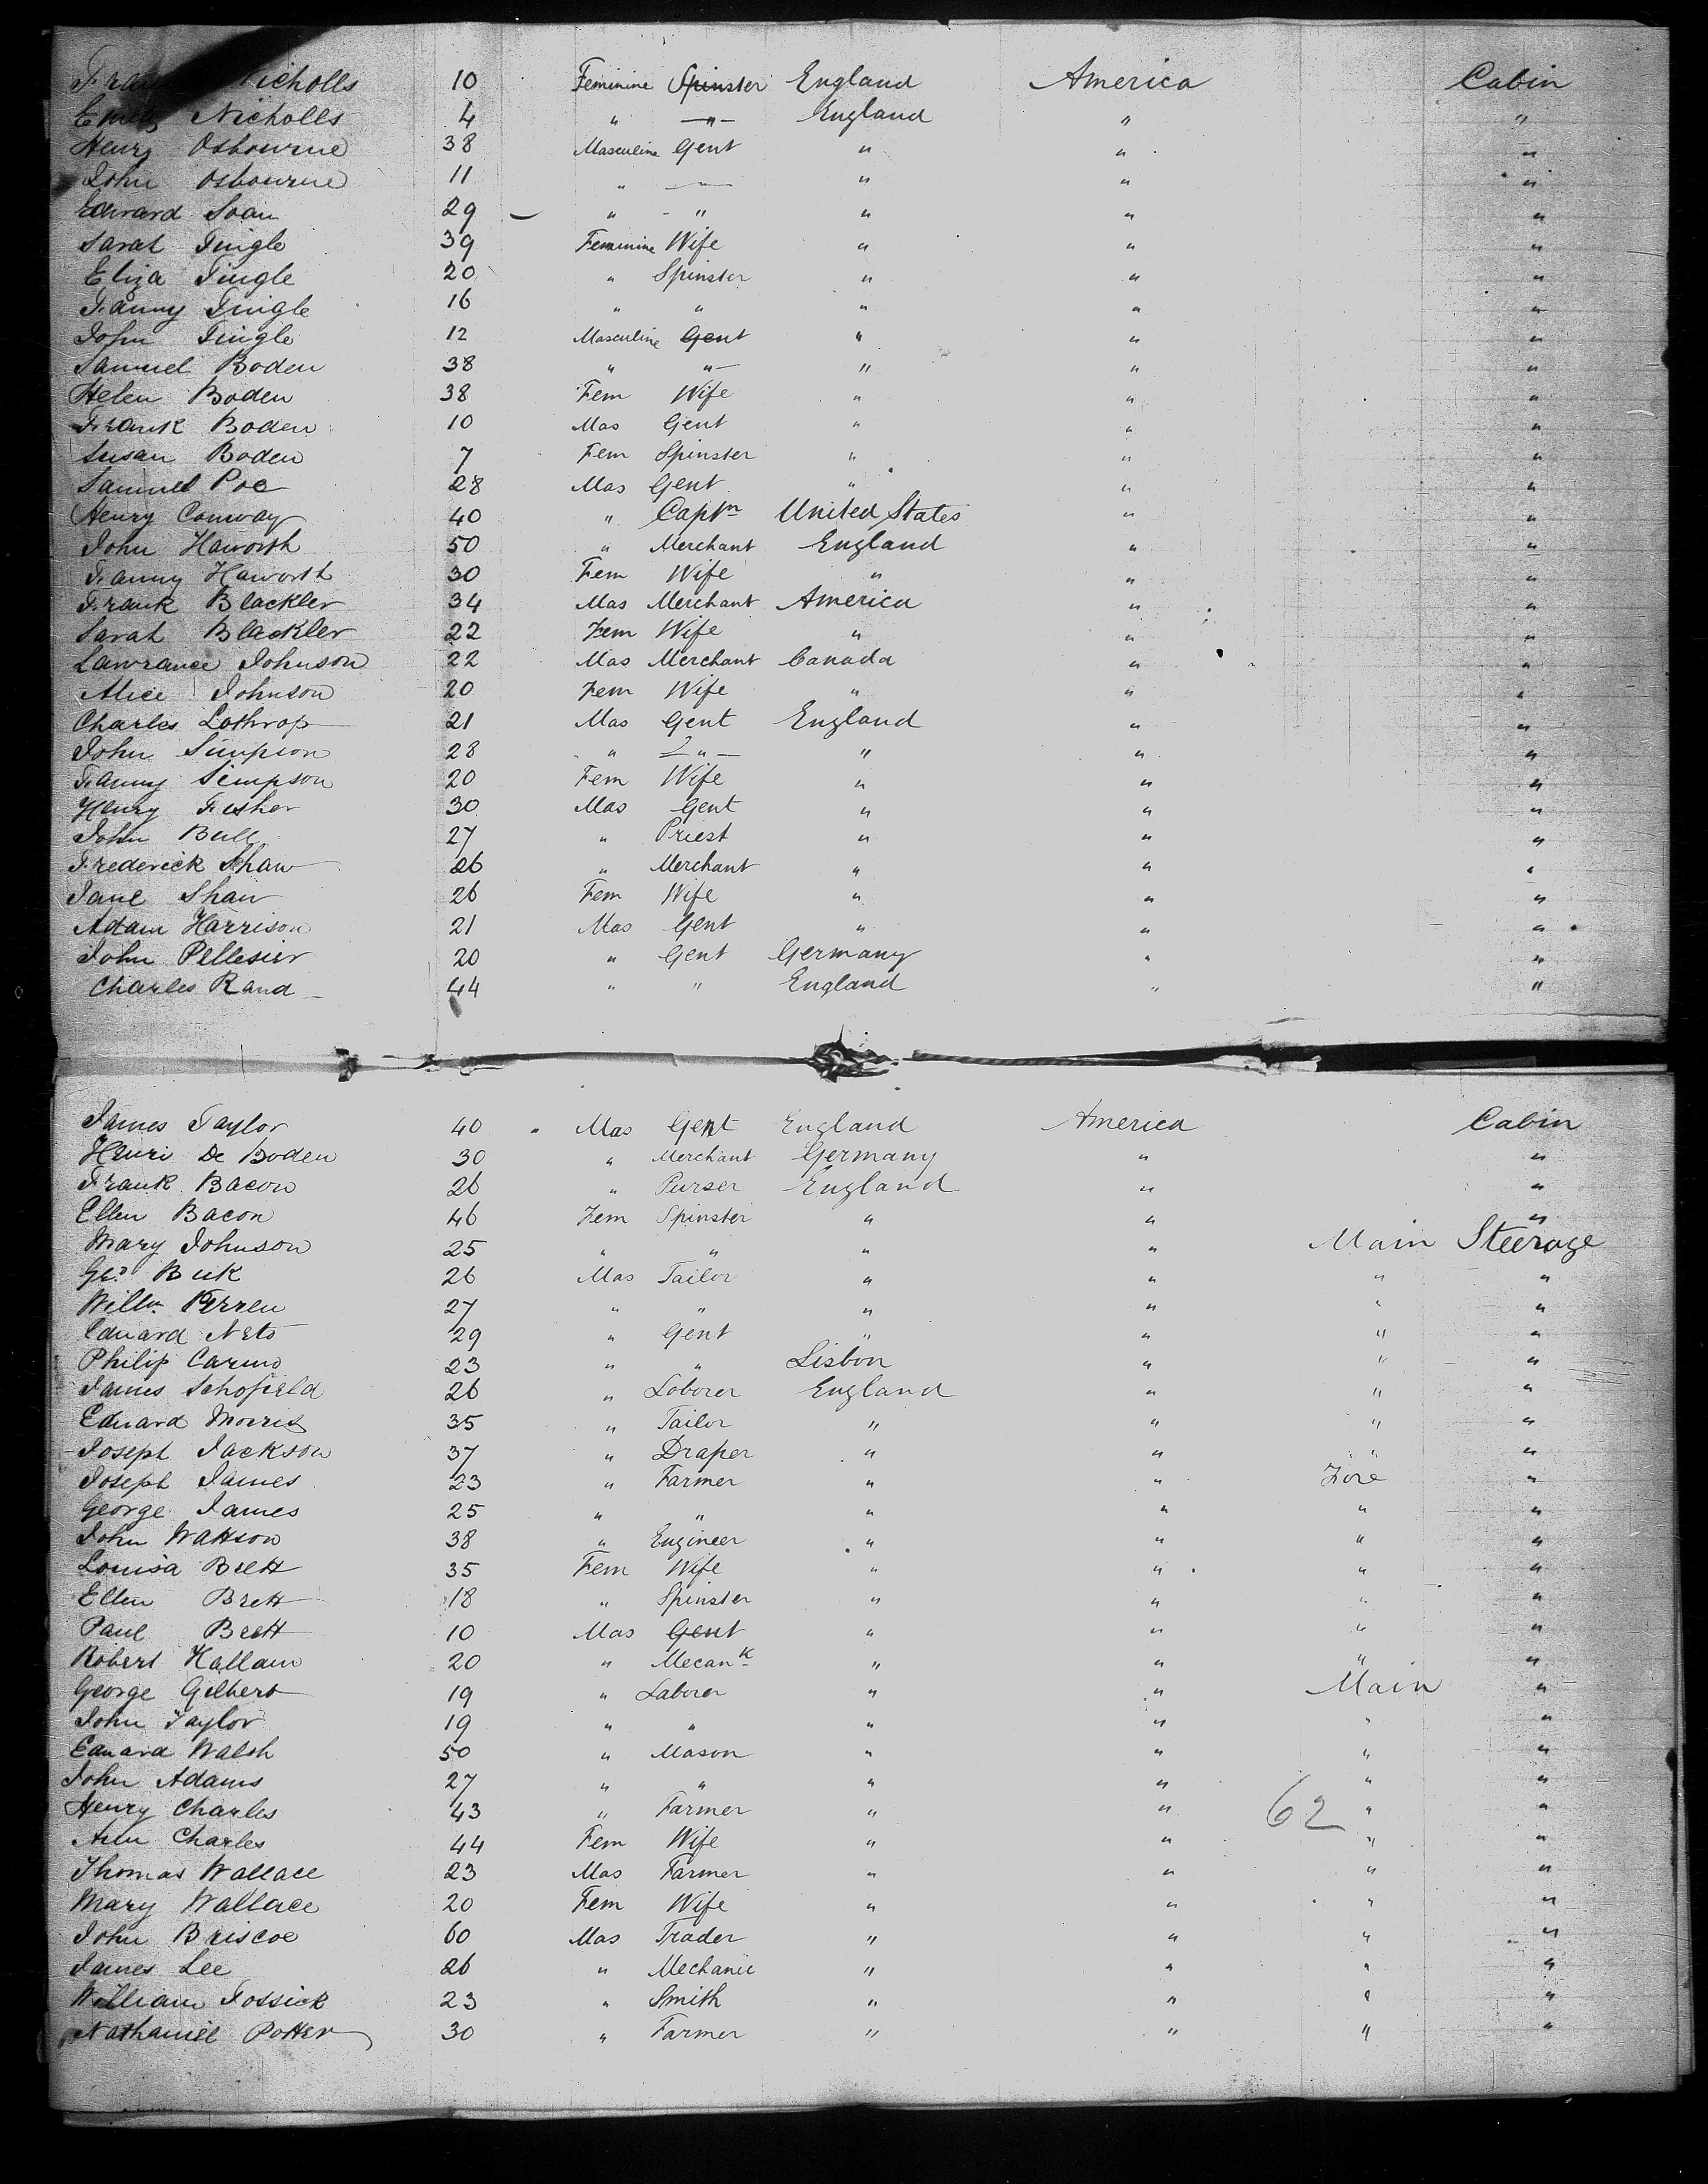 Nicholls 10 Feminine Spinster England America Cabin
Emily Nicholls 4 " " England " "
Henry Osbourne 38 Masculine Gent " " "
John Osbourne 11 " " " " "
Edward Soan 29 " " " " "
Sarah Tingle 39 Feminine Wife " " "
Eliza Tingle 20 " Spinster " " "
Fanny Tingle 16 " " " " "
John Tingle 12 Masculine Gent " " "
Samuel Boden 38 " " " " "
Helen Boden 38 Fem Wife " " "
Frank Boden 10 Mas Gent " " "
Susan Boden 7 Fem Spinster " " "
Samuel Poe 28 Mas Gent " " "
Henry Conway 40 " Captn United States " "
John Haworth 50 " Merchant England " "
Fanny Haworth 30 Fem Wife " " "
Frank Blackler 34 Mas Merchant America " "
Sarah Blackler 22 Fem Wife " " "
Lawrance Johnson 22 Mas Merchant Canada " "
Alice Johnson 20 Fem Wife " " "
Charles Lothrop 21 Mas Gent England " "
John Simpson 28 " " " " "
Fanny Simpson 20 Fem Wife " " "
Henry Fisher 30 Mas Gent " " "
John Bull 27 " Priest " " "
Frederick Shaw 26 " Merchant " " "
Jane Shaw 26 Fem Wife " " "
Adam Harrison 21 Mas Gent " " "
John Pellesier 20 " Gent Germany " "
Charles Rand 44 " " England " "
James Taylor 40 " Mas Gent England America Cabin
Henri De Boden 30 " Merchant Germany " "
Frank Bacon 26 " Purser England " "
Ellen Bacon 46 Fem Spinster " " "
Mary Johnson 25 " " " " Main Steerage
Geo. 26 Mas Tailor " " " "
Willm 27 " " " " " "
Edward 29 " Gent " " " "
Philip 23 " " Lisbon " " "
James Schofield 26 " Loborer England " " "
Edward Morris 35 " Tailor " " " "
Joseph Jackson 37 " Draper " " " "
Joseph James 23 " Farmer " " Fore "
George James 25 " " " " " "
John Wattson 38 " Engineer " " " "
Louisa Brett 35 Fem Wife " " " "
Ellen Brett 18 " Spinster " " " "
Paul Brett 10 Mas Gent " " " "
Robert Hallam 20 " Mecank " " " "
George Gilbert 19 " Laborer " " Main "
John Taylor 19 " " " " " "
Edward Walsh 50 " Mason " " " "
John Adams 27 " " " " " "
Henry Charles 43 " Farmer " " 62 " "
Ann Charles 44 Fem Wife " " " "
Thomas Wallace 23 Mas Farmer " " " "
Mary Wallace 20 Fem Wife " " " "
John Briscoe 60 Mas Trader " " " "
James Lee 26 " Mechanic " " " "
William Fossick 23 " Smith " " " "
Nathaniel Potter 30 " Farmer " " " "